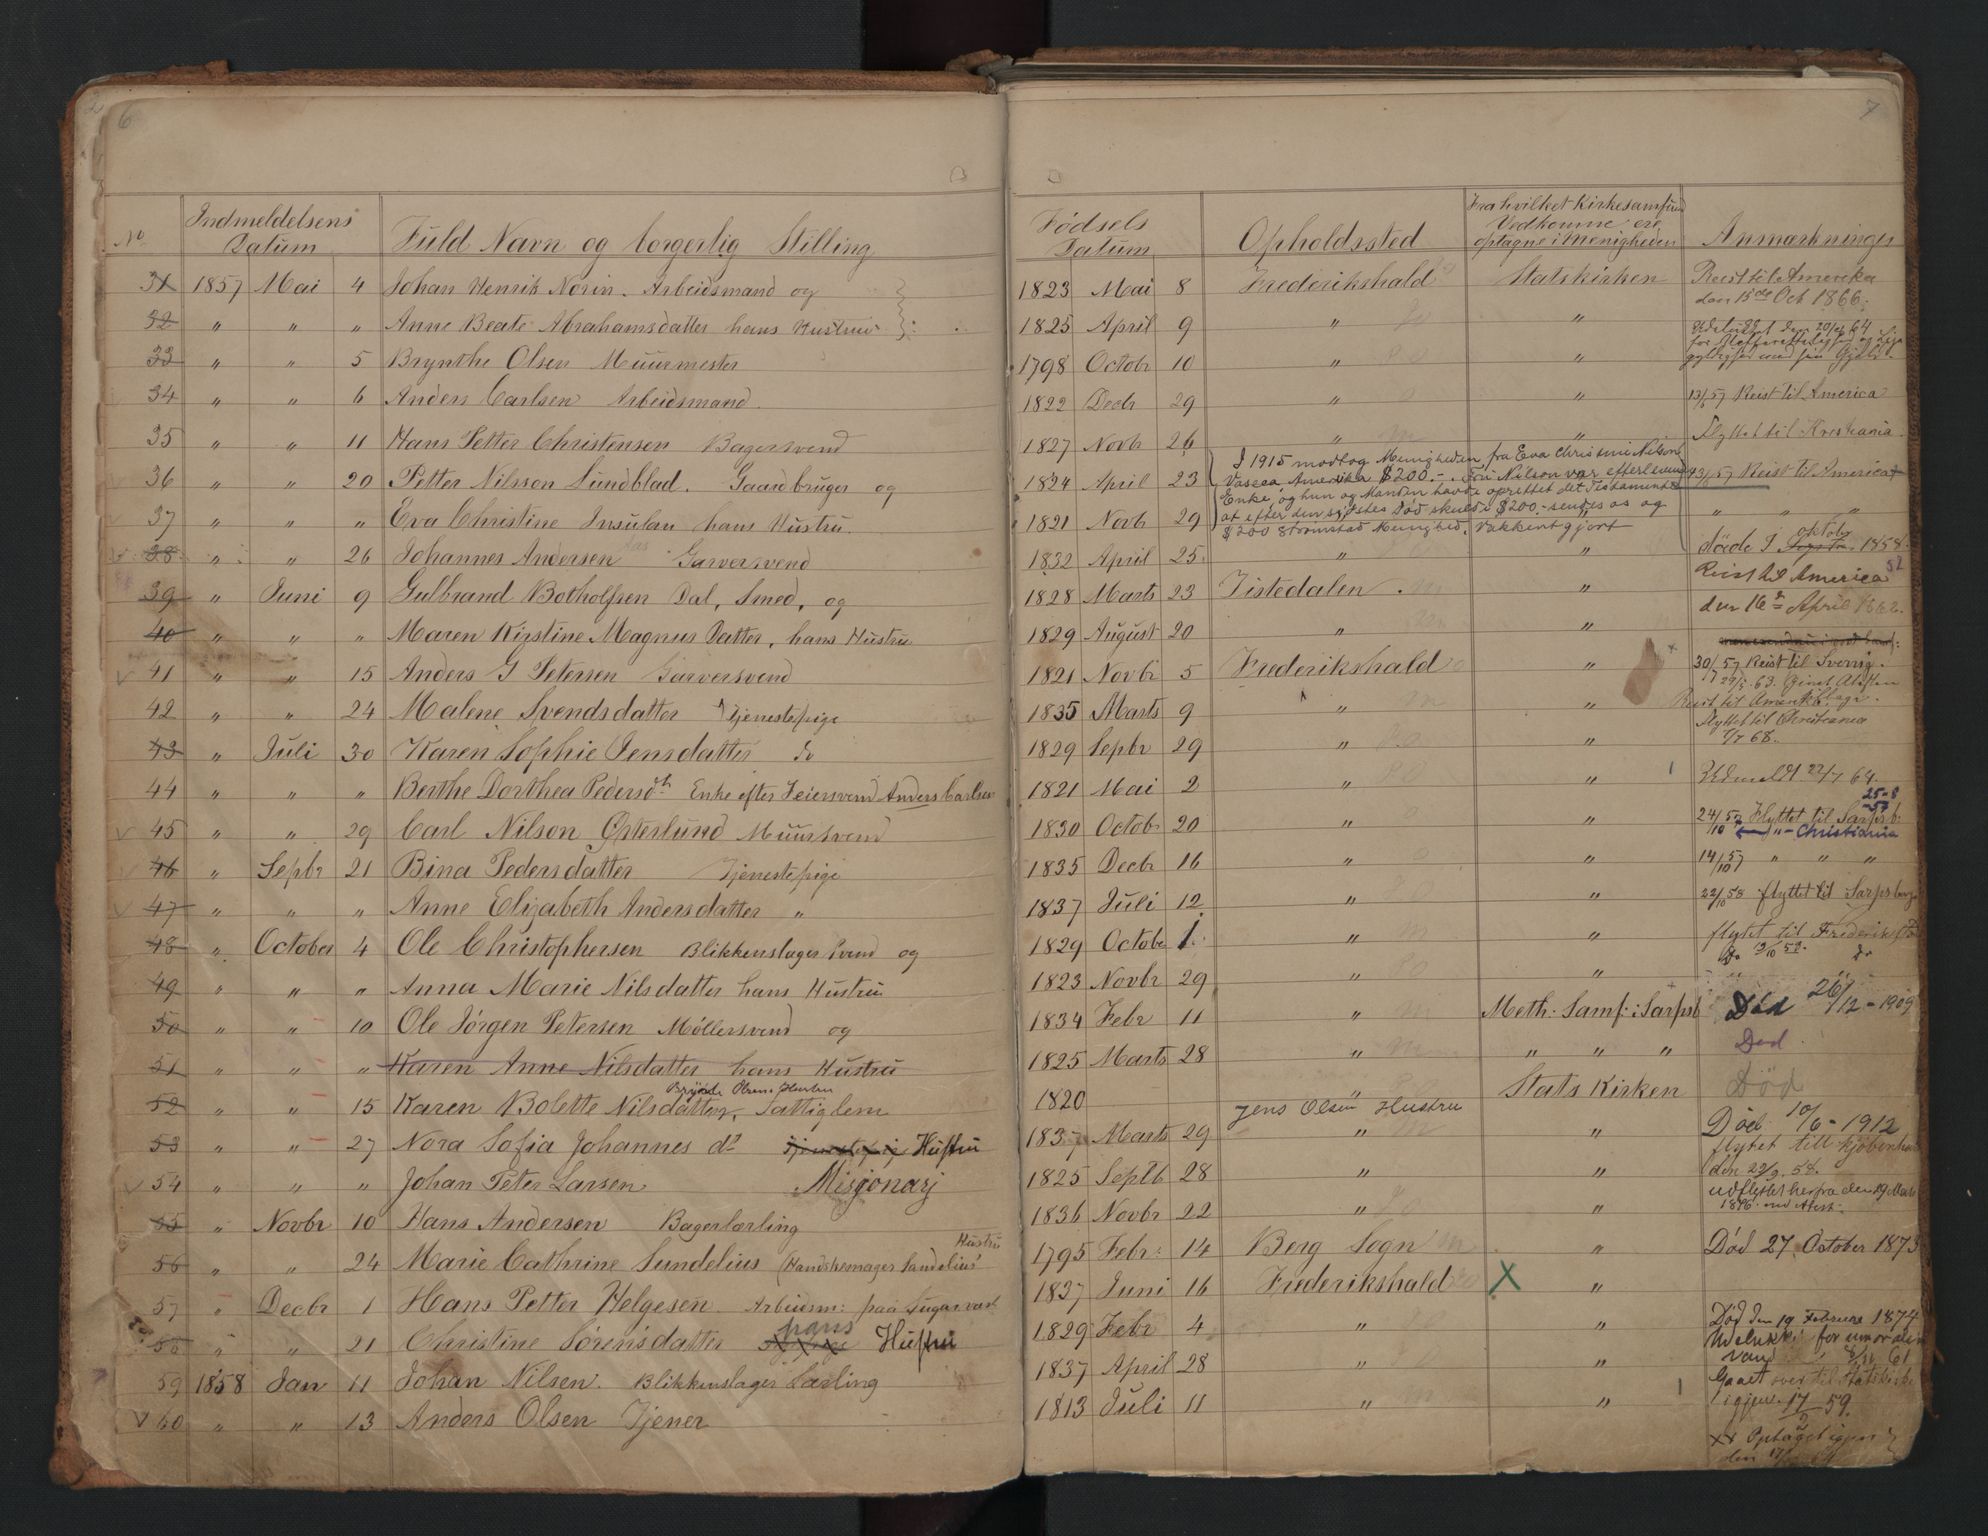 6
No
Indmeldelsens Datum
Fuld Navn og borgerlig Stilling
31 1857 Mai 4 Johan Henrik Norin. Arbeidsmand og
32 " " " Anne Beate Abrahamsdatter hans Hustru
33 " " 5 Brynthe Olsen Muurmester
34 " " 6 Anders Carlsen Arbeidsmand.
35 " " 11 Hans Petter Christensen Bagersvend
36 " " 20 Petter Nilsson Lundblad. Gaardbruger og
37 " " " Eva Christine Insulan hans Hustru
38 " " 26 Johannes Andersen Garversvend
39 " Juni 9 Gulbrand Botholfsen Dal, Smed, og
40 " " " Maren Kirstine Magnus Datter, hans Hustru
41 " " 15 Anders G Petersen Garversvend
42 " " 24 Malene Svendsdatter Tjenestepige
43 " Juli 30 Karen Sophie Jensdatter do
44 " " " Berthe Dorthea Pedersdt Enke efter Feiersvend Anders Carlsen
45 " " 29 Carl Nilson Østerlund Muursvend
46 " Sepbr 21 Bina Pedersdatter Tjenestepige
47 " " " Anne Elizabeth Andersdatter "
48 " October 4 Ole Christophersen Blikkenslager Svend og
49 " " " Anna Marie Nilsdatter hans Hustru
50 " " 10 Ole Jørgen Petersen Møllersvend og
51 " " " Karen Anne Nilsdatter hans Hustru
52 " " 15 Karen Bolette Nilsdatter, Fattiglem
53 " " 27 Nora Sofia Johannes dt Hustru
54 " " " Johan Peter Larsen Misjonærj
55 " Novbr 10 Hans Andersen Bagerlærling
56 " " 24 Marie Cathrine Sundelius (Handskemager Sundelius' Hustru
57 " Decbr 1 Hans Petter Helgesen. Arbeidsm: paa Sugarvært
58 " " 21 Christine Sørensdatter hans Hustru
59 1858 Jan 11 Johan Nilsen. Blikkenslager Lærling
60 " " 13 Anders Olsen Tjener
7
Fødsels Datum
Opholdssted
Fra hvilket Kirkesamfund
Vedkomne er
optagne i Menigheden
Anmærkninger
1823 Mai 8 Frederikshald Statskirken Reist til Amerika
den 15de Oct 1866.
1825 April 9 " "
1798 Octobr 10 " "
1822 Decbr 29 " " 13/5 57 Reist til America
1827 Novbr 26 " " Flyttet til Kristiania
I 1915 modtog Menigheden fra Eva Christine Nilson
Vascca Amerika $200.-. Fru Nilson var efterlevende
Enke og hun og Manden havde oprettet det Testamente
at efter den sidstes Død skulde $200.- sendes os og
$200 Strømstad Menighed. Vakkert gjort
1824 April 23 13/5 57 Reist til America
1821 Novb 29 " " "
1832 April 25 " " døde I oktober 1858.
1828 Marts 23 Tistedalen " Reist til America
den 16de April 1862.
1829 August 20 " "
1821 Novbr 5 Frederikshald " 30/7 57 Reist til Sverrig.
1835 Marts 9 " " Reist til Amerika
1829 Sepbr 29 " " Flyttet til Christiania
7/7 68.
1821 Mai 2 " " Udmeldt 22/7 64.
1830 Octobr 20 " " 24/10 57 Flyttet til Sarpsb:
25-8-58
"- Christiania
1835 Decbr 16 " " 14/10 57 " " "
1837 Juli 12 " " 22/10 58 flyttet til Sarpsborg
1829 Octobr 1 " " flytet til Frederikstad
1823 Novbr 29 " " Do 13/10 58. do
1834 Febr 11 " Meth. Samf: i Sarpsb Død 26/12-1909
1825 Marts 28 " " " " Død
1820 " Stats Kirken Død
Jens Olsen Hustru
1837 Marts 29 " " Død 10/6-1912
1825 Septb 28 " " flytet till Kjöbenhavn
den 29/9. 58.
1836 Novbr 22 " " udflyttet herfra den 19 Marts
1896. med Attest.
1795 Febr: 14 Berg Sogn " Død 27 October 1873
1827 Juni 16 Frederikshald X "
1829 Febr 4 " " Død den 19 Februar 1874
1837 April 28 " " Udelukket for umoralsk
vand 61
1813 Juli 11 " " Gaaet over til Statskirke
igjen. 17/2 59.
xx Optaget igjen
den